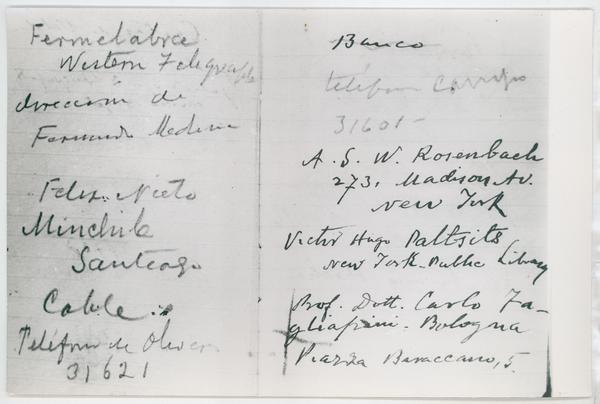 Fermelabra
Western Telegraph
dirección de
Fernando Medina
Felix Nieto
Minchile
Santiago
Cable:
Teléfono de Oliver
31621
Banco
teléfono
31601-
A. S. W. Rosenbach
273, Madison Av.
New York
Victor Hugo Paltsits
New York Public Library
Prof. Dott. Carlo Ta-
gliafini. Bologna
Piazza Baraccano, 5.